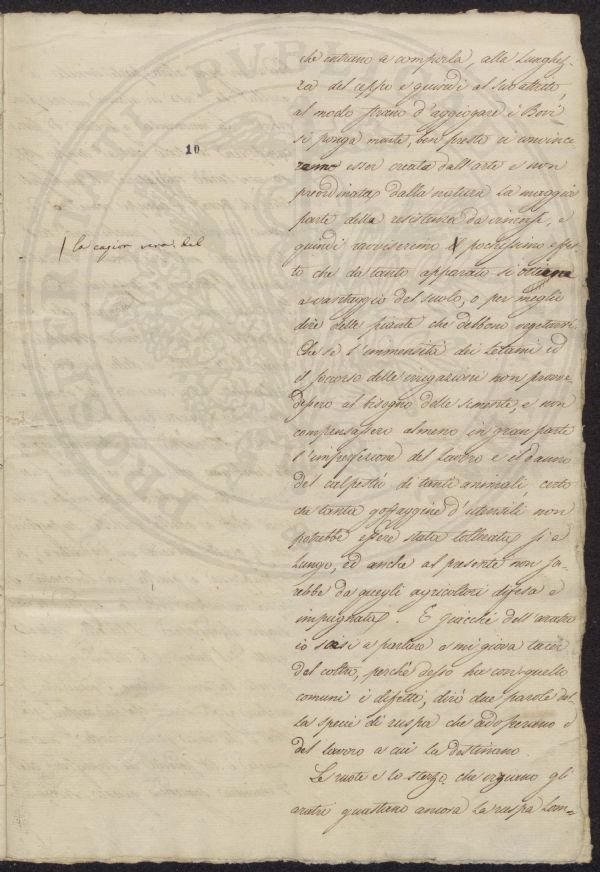 10
/ la cagion vera del
che entrano a comporla, alla lunghez-
za del ceppo e quindi al suo attrito,
al modo strano d'aggiogare i Bovi
si ponga mente, ben presto ci convince-
remo esser creata dall'arte e non
preordinata dalla natura la maggior
parte della resistenza da vincersi, e
quindi ravviseremo pochissimo effet-
to che da tanto apparato si ottiene
a vantaggio del suolo, o per meglio
dire delle piante che debbono vegetarvi.
Che se l'immensità dei letami ed
il soccorso delle irrigazioni non provve-
dessero al bisogno delle sementi, e non
compensassero almeno in gran parte
l'imperfezione del lavoro e il danno
del calpestìo di tanti animali, certo
che tanta goffaggine d'utensili non
potrebbe essere stata tollerata sì a
lungo, ed anche al presente non sa-
rebbe da quegli agricoltori difesa e
impugnata. E giacchè dell'aratro
io scesi a parlare e mi giova tacer
del coltro, perchè desso ha con quello
comuni i difetti, dirò due parole del-
la specie di ruspa che adoperano e
del lavoro a cui la destinano.
Le ruote e lo sterzo che ergueno gli
aratri guastano ancora la ruspa Lom-